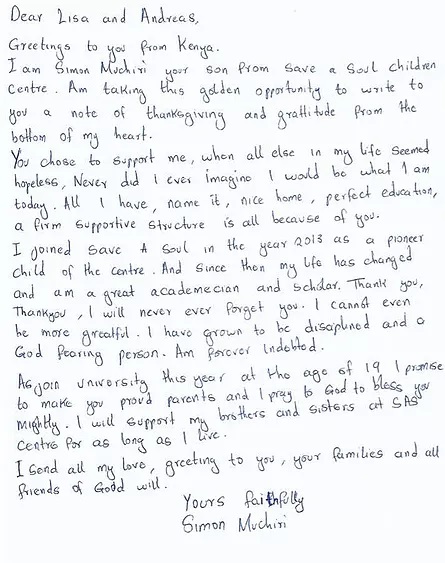 Dear Lisa and Andreas,
Greetings to you from Kenya.
I am Simon Muchiri your son from save a Soul children
Centre. Am taking this golden opportunity to write to
you a note of thanksgiving and grattitude from the
bottom of my heart.
You chose to support me, when all else in my life seemed
hopeless, Never did I ever imagine I would be what I am
today. All I have, name it, nice home, perfect education,
a firm supportive structure is all because of you.
I joined Save A Soul in the year 2013 as a pioneer
child of the centre. And since then my life has changed
and am a great academecian and scholar. Thank you,
Thankyou, I will never ever forget you. I cannot even
be more greatful. I have grown to be disciplined and a
God fearing person. Am forever Indebted.
As join university this year at the age of 19 I promise
to make you proud parents and I pray to God to bless you
Mightly. I will support my brothers and sisters at SAS
Centre for as long as I live.
I send all my love, greeting to you, your families and all
friends of Good will.
Yours faithfully
Simon Muchiri